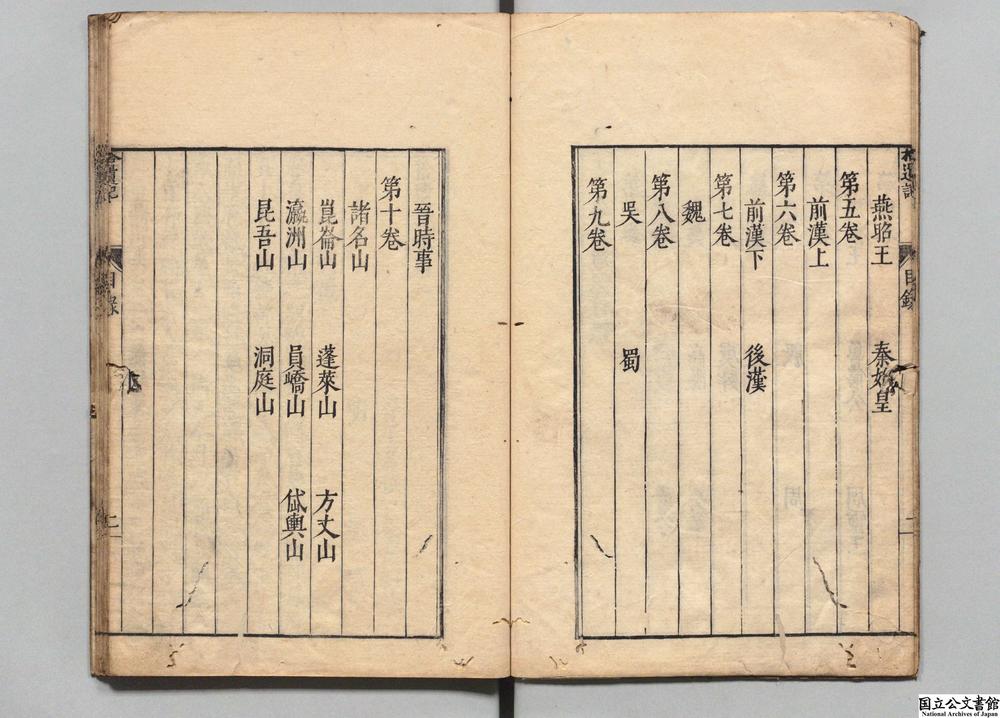 拾遺記 目錄 二
燕昭王 秦始皇
第五卷
前漢上
第六卷
前漢下 後漢
第七卷
魏
第八卷
吳 蜀
第九卷
晉時事
第十卷
諸名山
崑崙山 蓬萊山 方丈山
瀛洲山 員嶠山 岱輿山
昆吾山 洞庭山
拾遺記 目錄 二
国立公文書館
National Archives of Japan